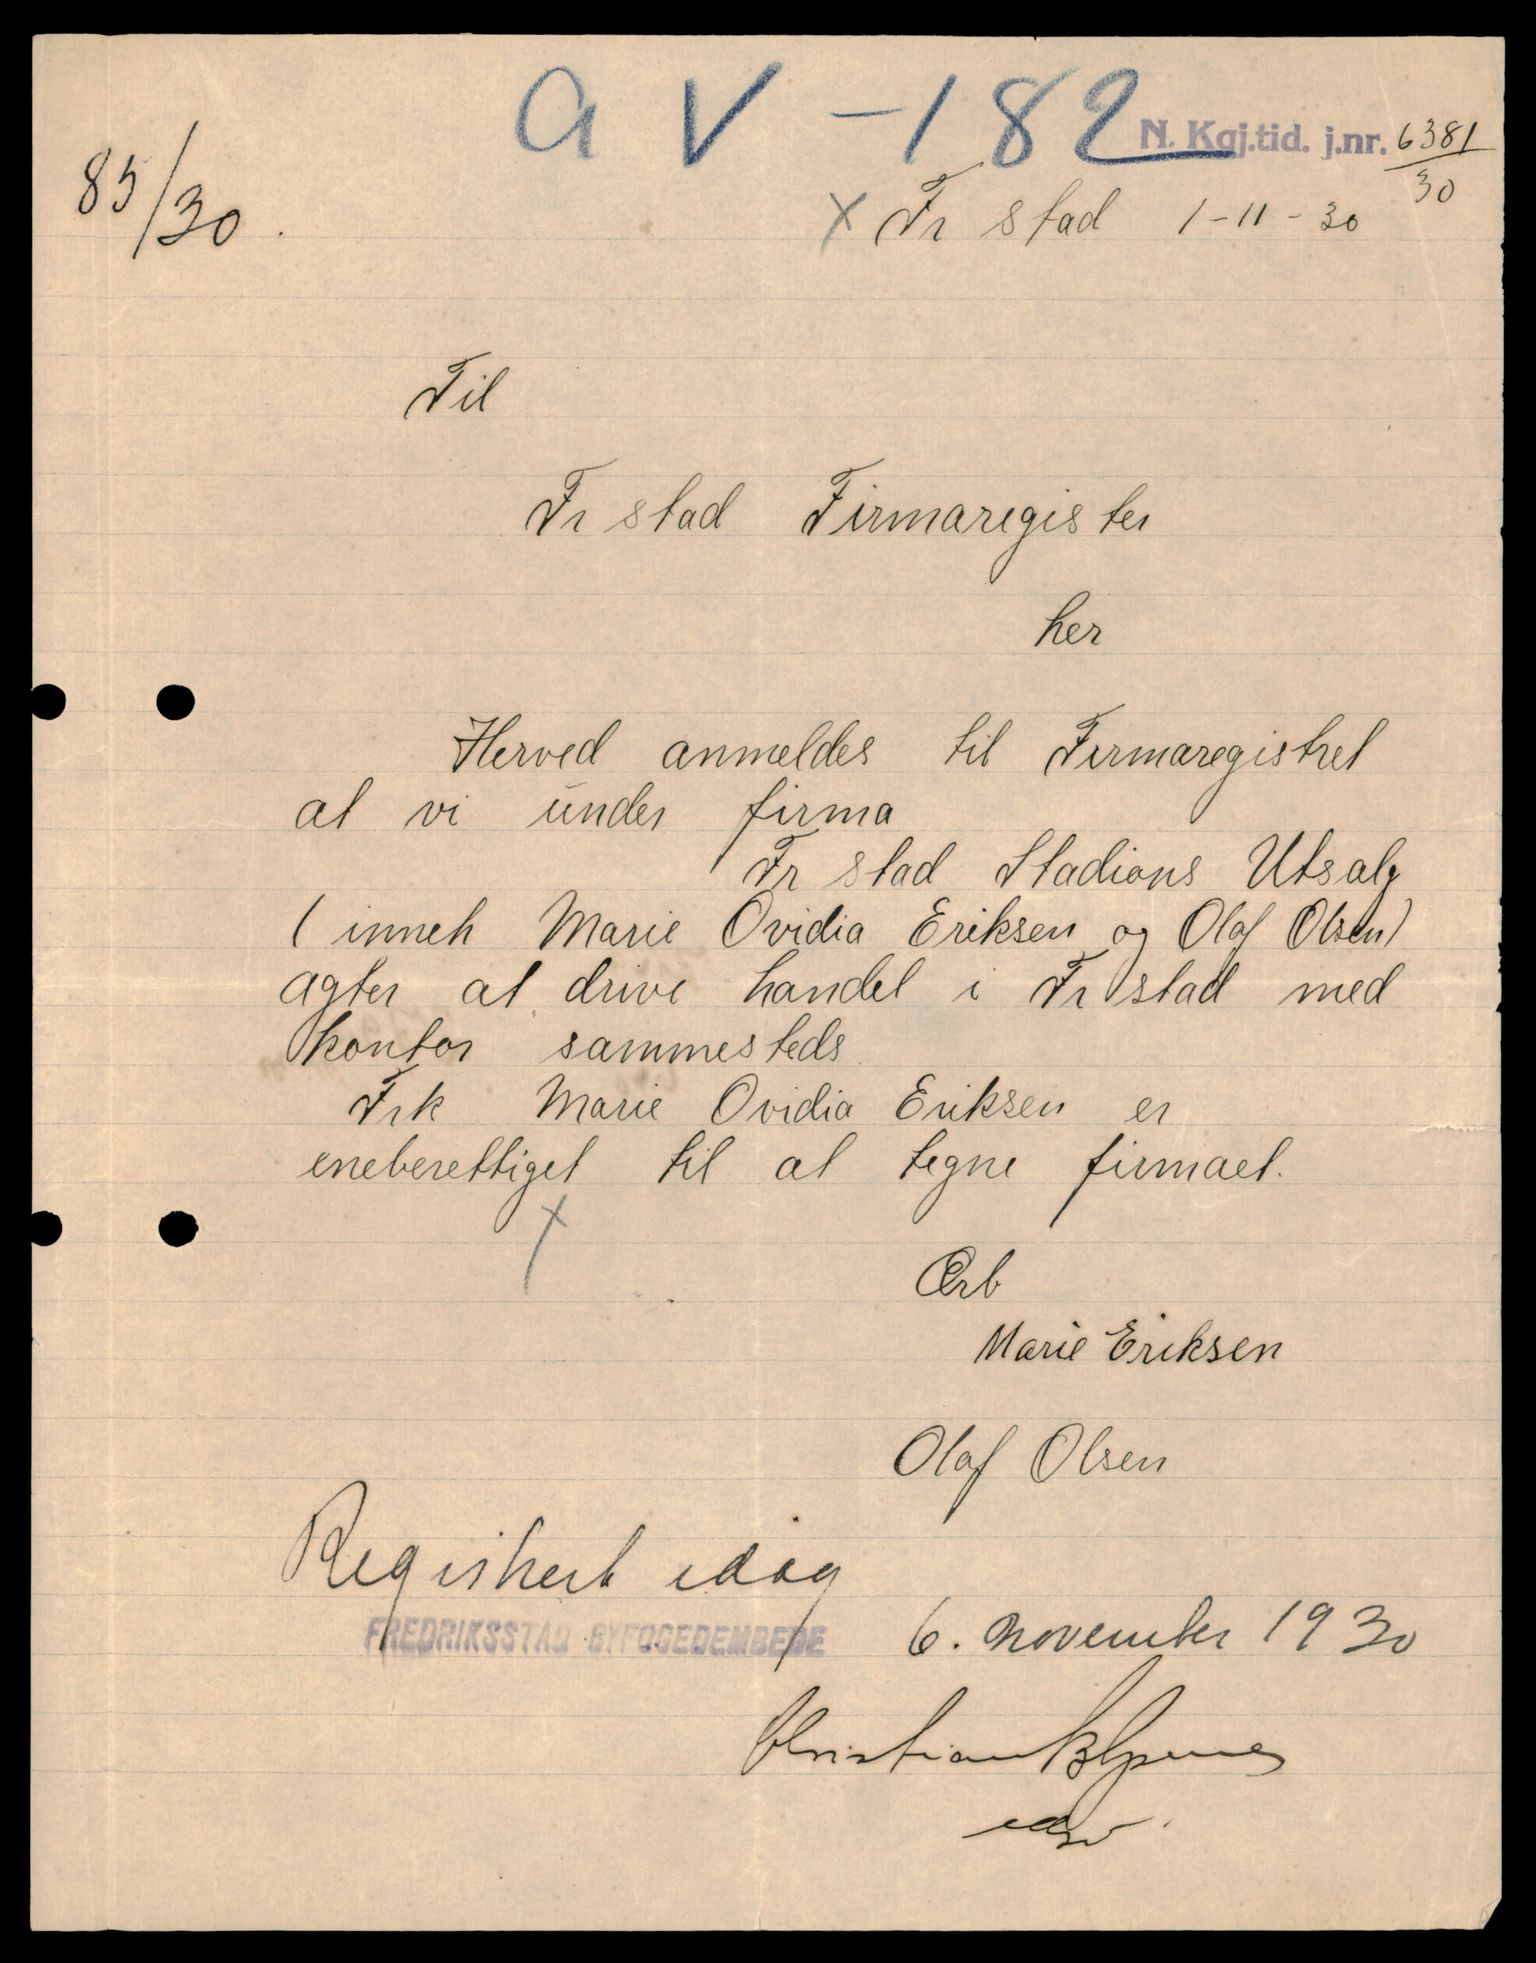 a V - 182
N. Kgj.tid. j.nr. 6381/30
85/30.
x Fr stad 1-11-30
Til
Fr stad Firmaregister
her
Herved anmeldes til Firmaregistret
at vi under firma
Fr stad Stadions Utsalg
( inneh Marie Ovidia Eriksen og Olaf Olsen)
agter at drive handel i Fr stad med
kontor sammesteds
Frk Marie Ovidia Eriksen er
eneberettiget til at tegne firmaet.
x
Ærb
Marie Eriksen
Olaf Olsen
Registrert idag
FREDRIKSSTAD BYFOGEDEMBEDE 6. november 1930
Christian